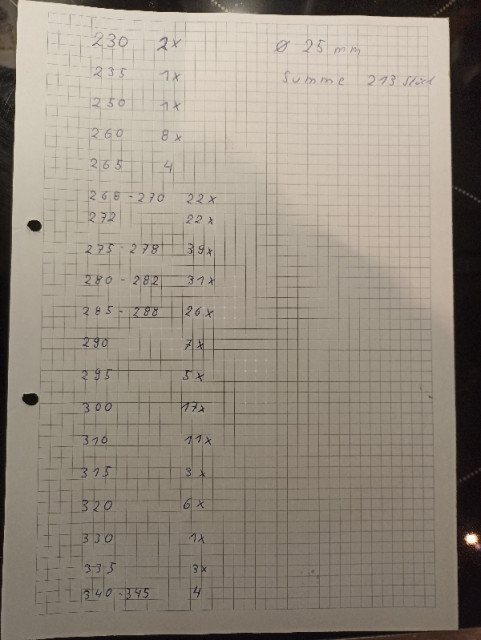 230 2x
ø 25 mm
235 1x
Summe 213 Stück
250 1x
260 8x
265 4
268-270 22x
272 22x
275-278 39x
280-282 31x
285-288 26x
290 7x
295 5x
300 17x
310 11x
315 3x
320 6x
330 1x
335 3x
340-345 4